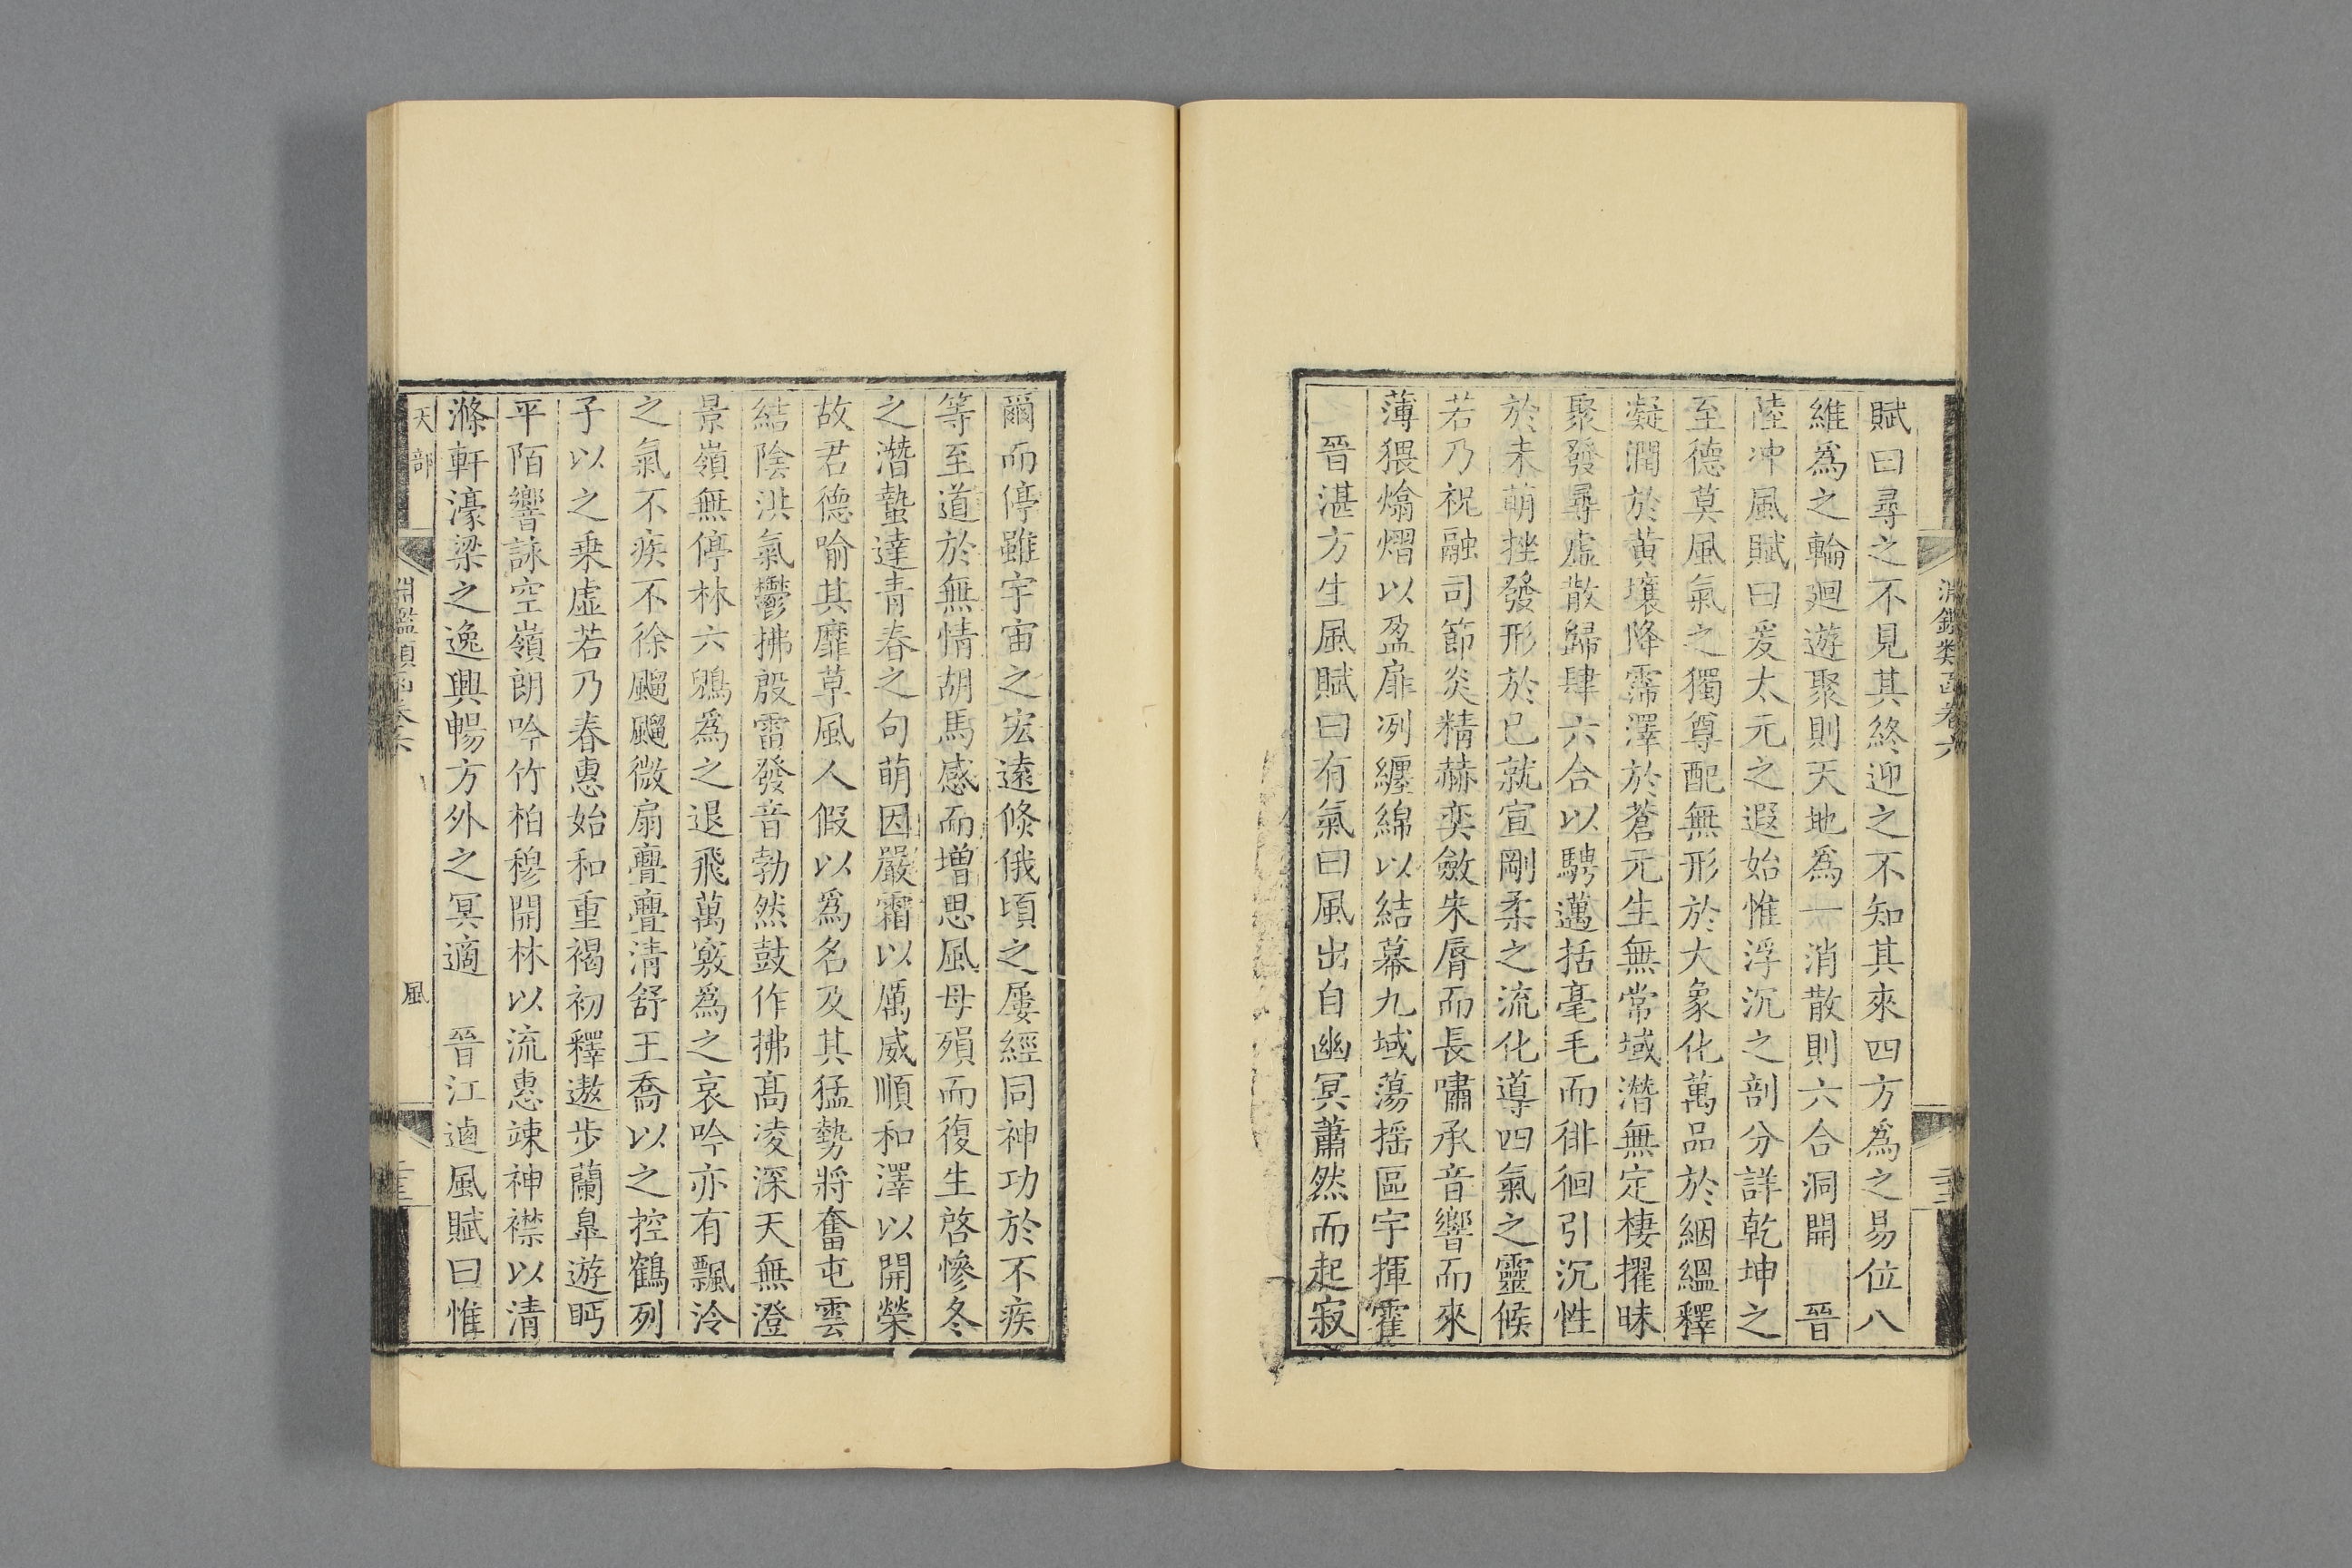 淵鑑類函卷六
賦曰尋之不見其終迎之不知其來四方爲之易位八
維爲之輪廻遊聚則天地爲一消散則六合洞開 晉
陸冲風賦曰爰太元之遐始惟浮沉之剖分詳乾坤之
至德莫風氣之獨尊配無形於大象化萬品於絪緼釋
凝潤於黄壤降霈澤於蒼元生無常域潛無定棲擢昧
聚發尋虛散歸肆六合以騁邁括毫毛而徘徊引沉性
於未萌挫發形於已就宣剛柔之流化導四氣之靈候
若乃祝融司節炎精赫奕斂朱脣而長嘯承音響而來
薄猥熻熠以盈扉冽纏綿以結幕九域蕩揺區宇揮霍
晉湛方生風賦曰有氣曰風出自幽冥蕭然而起寂
爾而停雖宇宙之宏遠倐俄頃之屢經同神功於不疾
等至道於無情胡馬感而增思風母殞而復生啓慘冬
之潛蟄達青春之句萌因嚴霜以厲威順和澤以開榮
故君德喻其靡草風人假以爲名及其猛勢將奮屯雲
結陰洪氣鬱拂殷雷發音勃然鼓作拂髙凌深天無澄
景嶺無停林六鶂爲之退飛萬竅爲之哀吟亦有飄泠
之氣不疾不徐飀飀微扇亹亹清舒王喬以之控鶴列
子以之乗虛若乃春惠始和重褐初釋遨步蘭皐遊眄
平陌響詠空嶺朗吟竹柏穆開林以流惠竦神襟以清
滌軒濠梁之逸興暢方外之冥適 晉江逌風賦曰惟
天部
風
淵鑑類函卷六